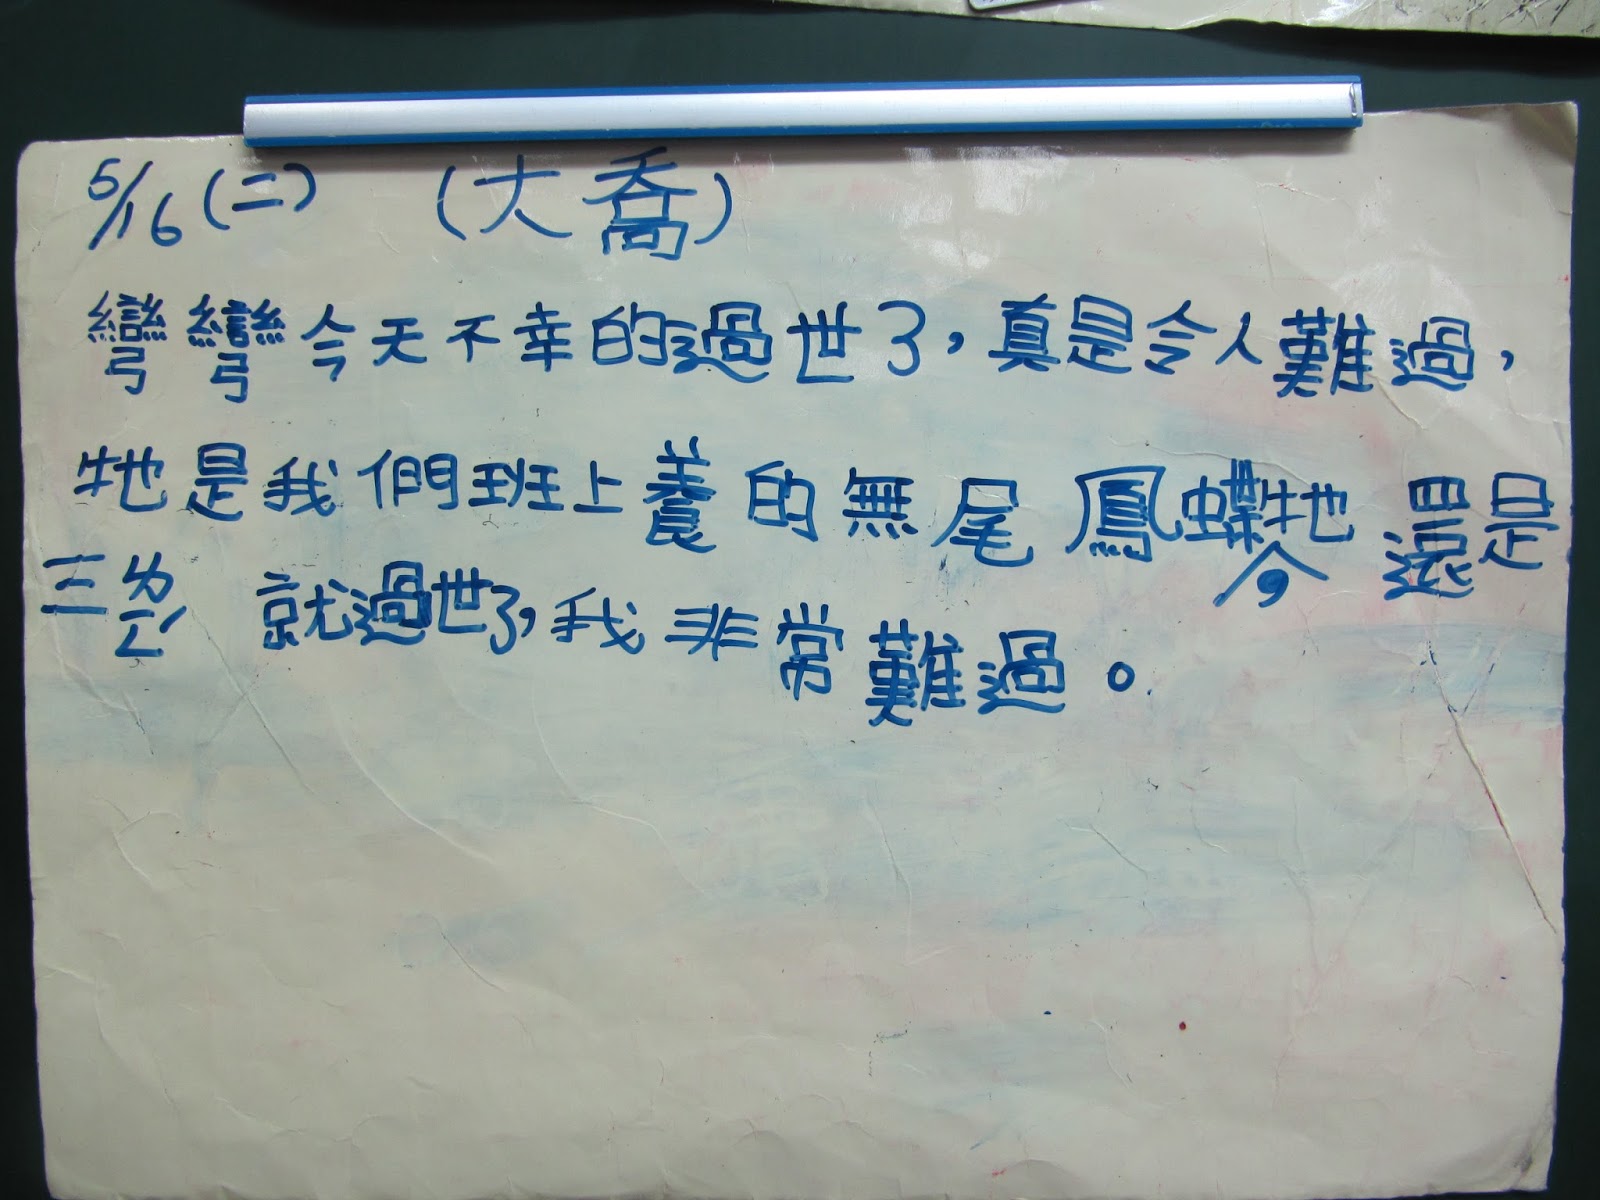 5/16(二) (大喬)
彎彎今天不幸的過世了,真是令人難過,
牠是我們班上養的無尾鳳蝶,牠還是
三ㄌㄧㄥˊ就過世了,我非常難過。